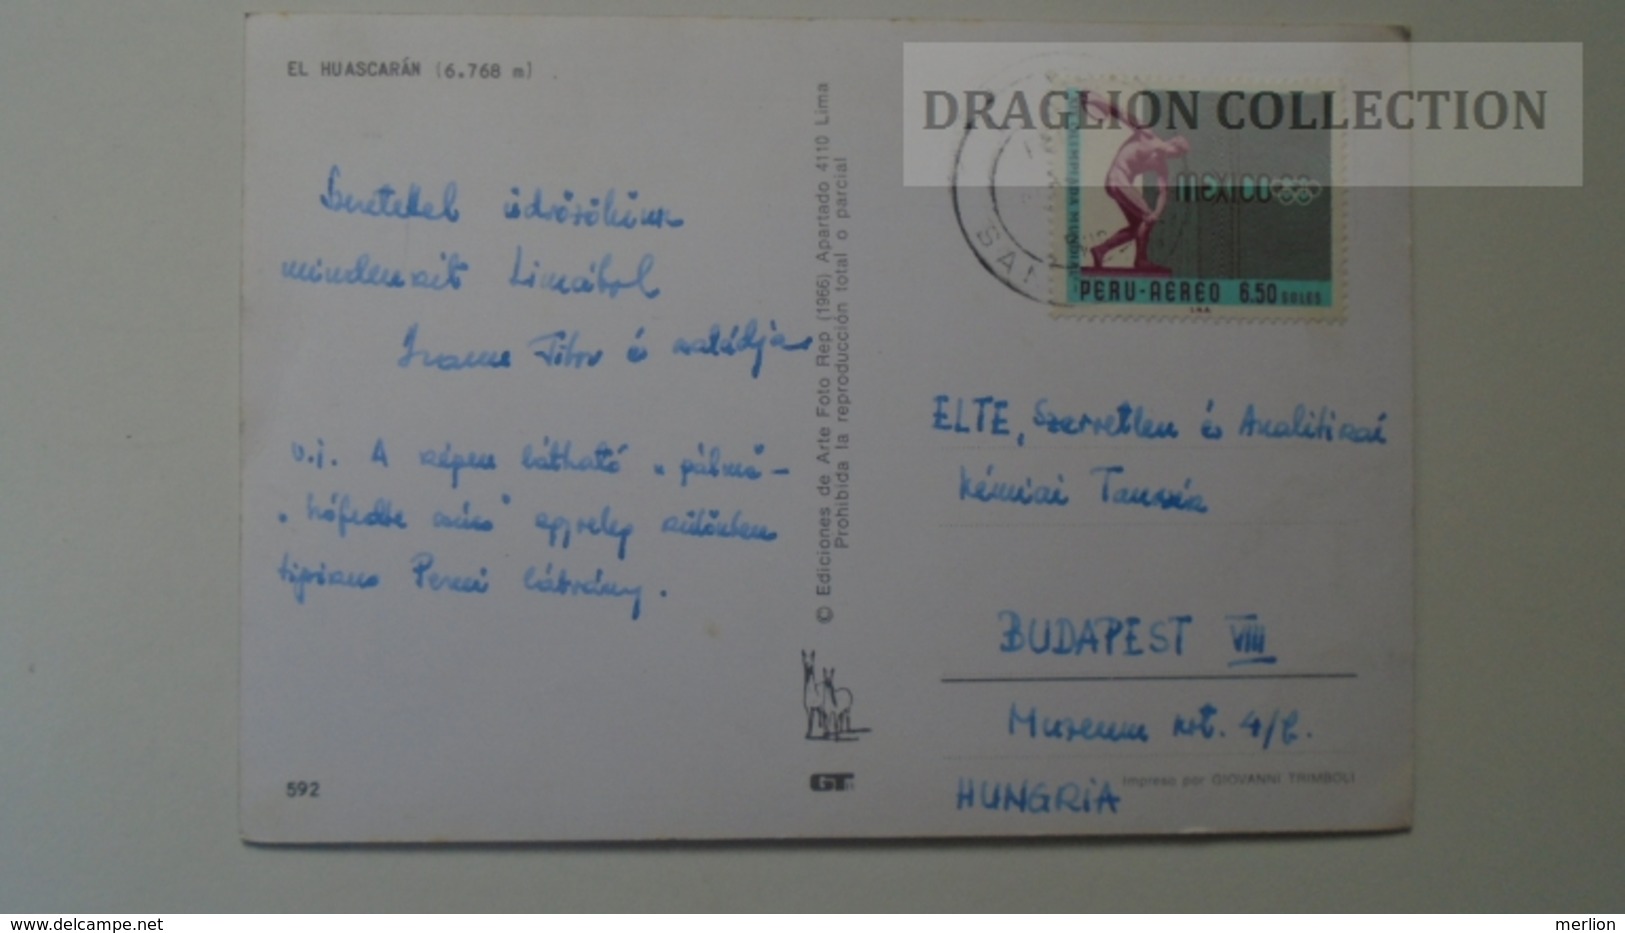 EL HUASCARÁN (6.768 m)
Szeretettel üdvözölünk
mindenkit Limából
Tibor és családja
u.i. A képen látható „pálma-
hófedte csúcs" együttes különben
tipikus Perui látvány.
592
© Ediciones de Arte Foto Rep (1966) Apartado 4110 Lima
Prohibida la reproducción total o parcial
GT
DRAGLION COLLECTION
XIX OLIMPIADA MUNDIAL
MEXICO 68
PERU-AEREO 6.50 SOLES
SAN
ELTE, Szervetlen és Analitikai
Kémiai Tanszék
BUDAPEST VIII
Muzeum krt. 4/b.
HUNGRIA
Impreso por GIOVANNI TRIMBOLI
www.delcampe.net
merlion